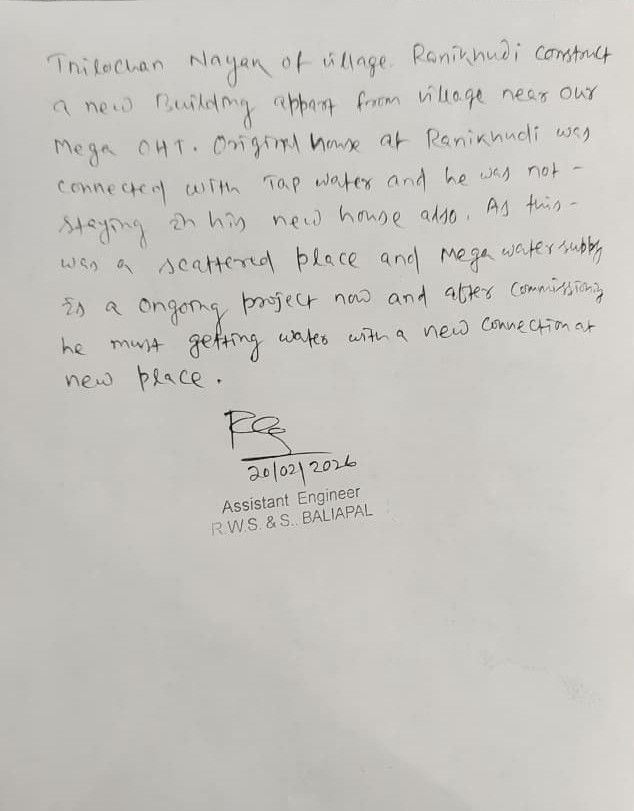 Trilochan Nayak of village Ranikhudi construct
a new Building appart from village near our
Mega OHT. Original house at Ranikhudi was
connected with Tap water and he was not -
staying in his new house also. As this -
was a scattered place and Mega water supply
is a ongoing project now and after commissioning
he must getting water with a new connection at
new place.
20/02/2026
Assistant Engineer
R.W.S. & S., BALIAPAL